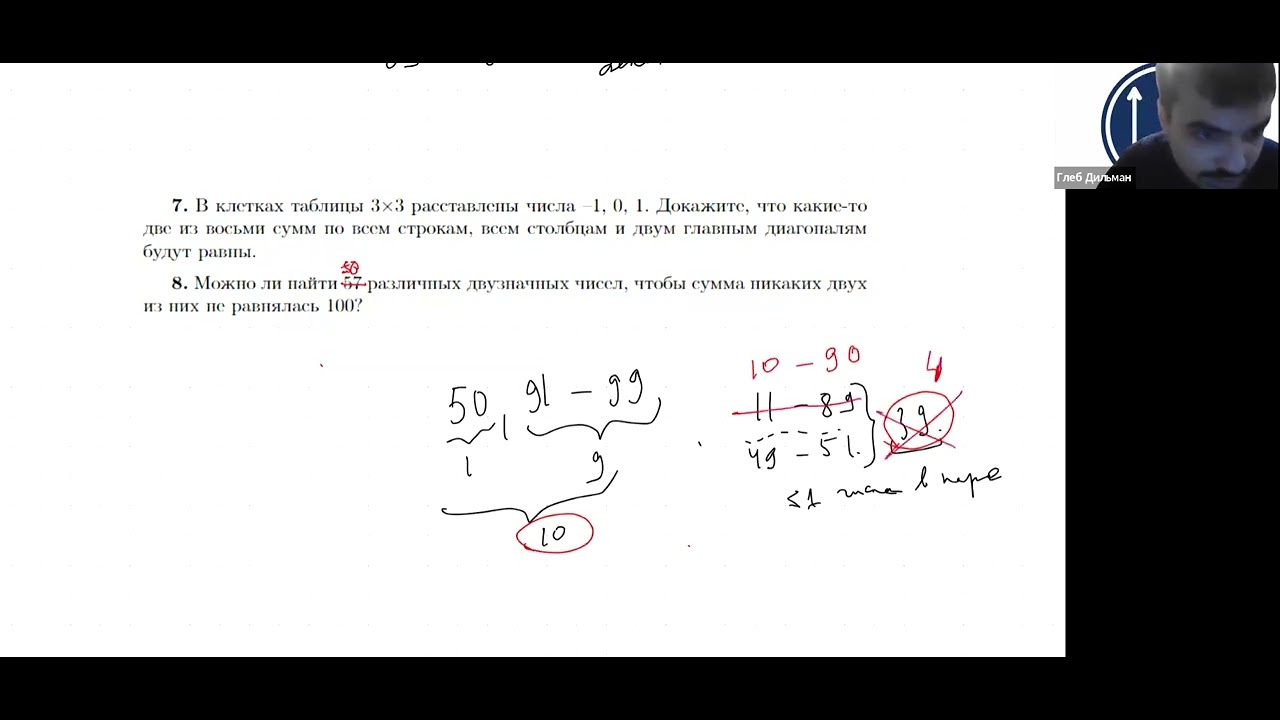 Глеб Дильман
7. В клетках таблицы 3×3 расставлены числа –1, 0, 1. Докажите, что какие-то
две из восьми сумм по всем строкам, всем столбцам и двум главным диагоналям
будут равны.
50
8. Можно ли найти 57 различных двузначных чисел, чтобы сумма никаких двух
из них не равнялась 100?
10 – 90 4
50, 91 – 99
11 – 89
39.
49 – 51.
1 9
≤1 числа в паре
10